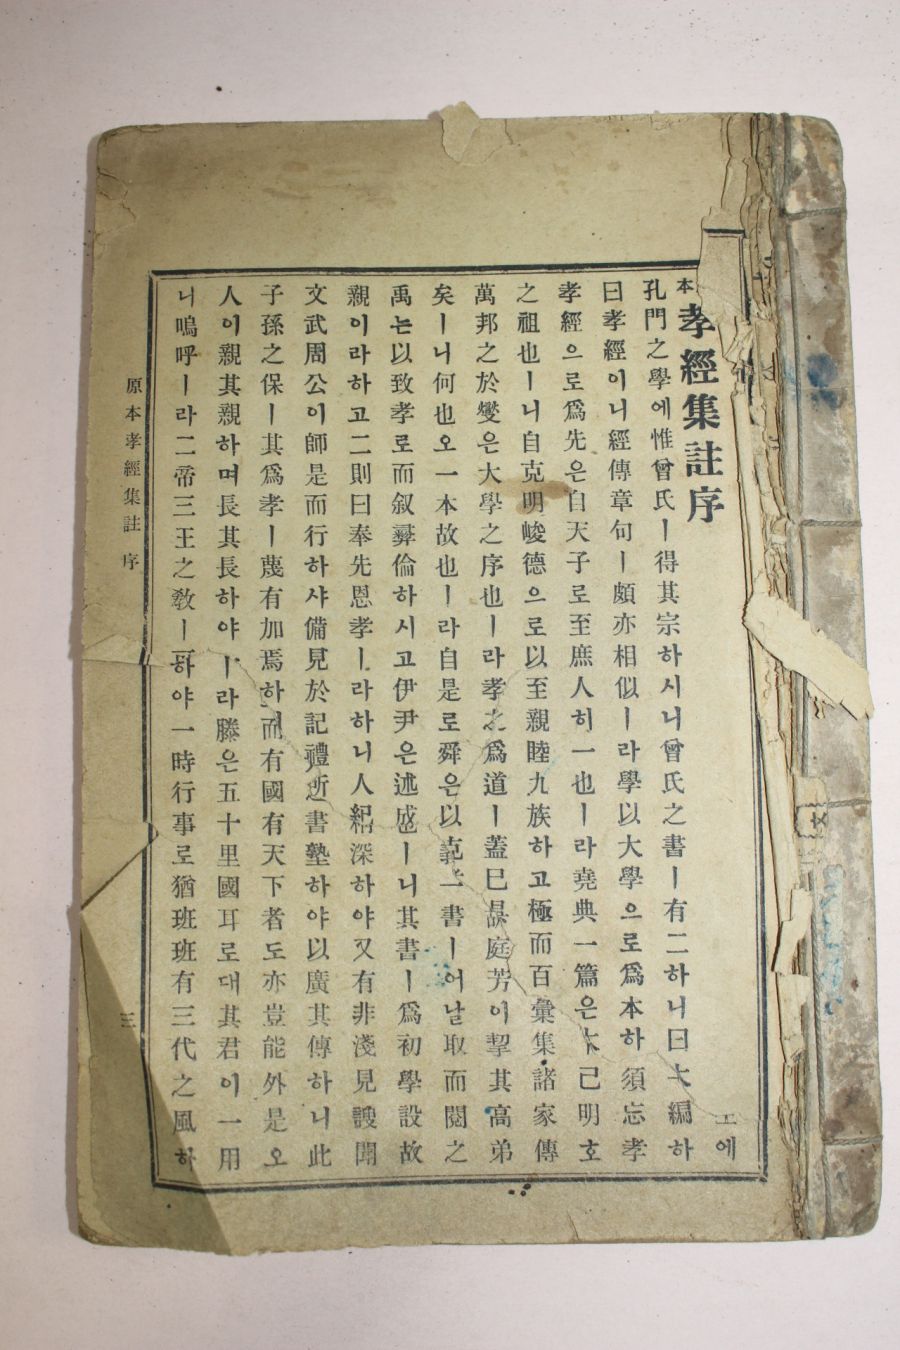 本孝經集註序
孔門之學에惟曾氏ㅣ得其宗하시니曾氏之書ㅣ有二하니曰大編하
曰孝經이니經傳章句ㅣ頗亦相似ㅣ라學以大學으로爲本하須忘孝
孝經으로爲先은自天子로至庶人히一也ㅣ라堯典一篇은木己明호
之祖也ㅣ니自克明峻德으로以至親睦九族하고極而百彙集諸家傳
萬邦之於變은大學之序也ㅣ라孝之爲道ㅣ蓋已庭芳이挈其高弟
矣ㅣ니何也오一本故也ㅣ라自是로舜은以克書ㅣ어날取而閱之
禹는以致孝로而叙彛倫하시고伊尹은述ㅣ니其書ㅣ爲初學設故
親이라하고二則曰奉先思孝ㅣ라하니人紀深하야又有非淺見謏聞
文武周公이師是而行하샤備見於記禮近書塾하야以廣其傳하니此
子孫之保ㅣ其爲孝ㅣ蔑有加焉하而有國有天下者도亦豈能外是오
人이親其親하며長其長하야ㅣ라滕은五十里國耳로대其君이一用
니嗚呼ㅣ라二帝三王之敎ㅣ하야一時行事로猶班班有三代之風하
原本孝經集註 序
三
에